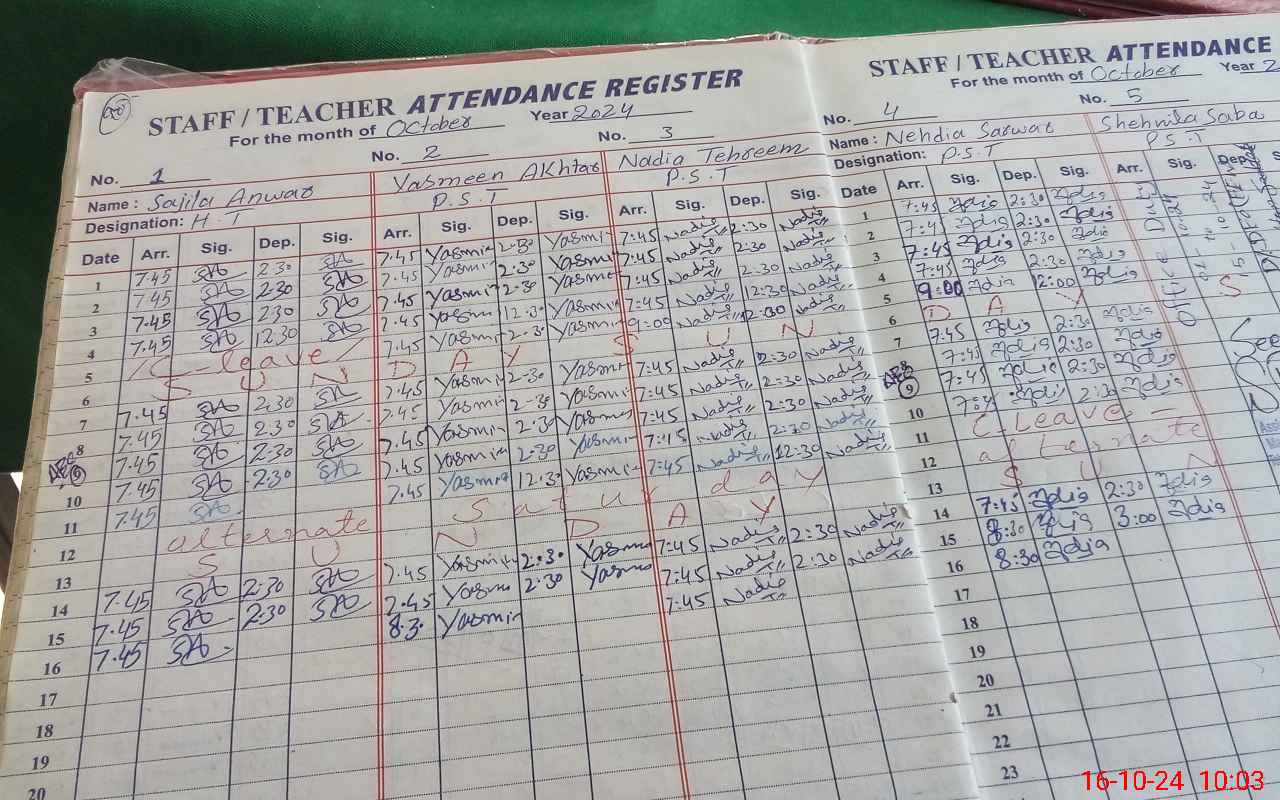 STAFF / TEACHER ATTENDANCE REGISTER
For the month of October Year 2024
No. 1 No. 2 No. 3
Name : Sajila Anwar Yasmeen Akhtar Nadia Tehreem
Designation: H.T P.S.T P.S.T
Date Arr. Sig. Dep. Sig. Arr. Sig. Dep. Sig. Arr. Sig. Dep. Sig.
1 7.45 SA 2.30 SA 7.45 Yasmin 2.30 Yasmin 7:45 Nadia 2:30 Nadia
2 7.45 SA 2.30 SA 7.45 Yasmin 2.30 Yasmin 7:45 Nadia 2:30 Nadia
3 7.45 SA 2.30 SA 7.45 Yasmin 2.30 Yasmin 7:45 Nadia 2:30 Nadia
4 7.45 SA 12.30 SA 7.45 Yasmin 12.30 Yasmin 7:45 Nadia 12:30 Nadia
5 C-leave 7.45 Yasmin 2.30 Yasmin 9:00 Nadia 2:30 Nadia
6 S U N D A Y S U N
7 7.45 SA 2.30 SA 7.45 Yasmin 2.30 Yasmin 7:45 Nadia 2:30 Nadia
8 7.45 SA 2.30 SA 7.45 Yasmin 2.30 Yasmin 7:45 Nadia 2:30 Nadia
9 7.45 SA 2.30 SA 7.45 Yasmin 2.30 Yasmin 7:45 Nadia 2:30 Nadia
10 7.45 SA 2.30 SA 7.45 Yasmin 2.30 Yasmin 7:45 Nadia 2:30 Nadia
11 7.45 SA 7.45 Yasmin 12.30 Yasmin 7:45 Nadia 12:30 Nadia
12 alternate Saturday
13 S U N D A Y
14 7.45 SA 2.30 SA 7.45 Yasmin 2.30 Yasmin 7:45 Nadia 2:30 Nadia
15 7.45 SA 2.30 SA 7.45 Yasmin 2.30 Yasmin 7:45 Nadia 2:30 Nadia
16 7.45 SA 8.3 Yasmin 7:45 Nadia
17
18
19
20
STAFF / TEACHER ATTENDANCE
For the month of October Year 2
No. 4 No. 5
Name : Nehdia Sarwar Shehnila Saba
Designation: P.S.T P.S.T
Date Arr. Sig. Dep. Sig. Arr. Sig. Dep.
1 7:45 2:30
2 7:45 2:30
3 7:45 2:30
4 7:45 2:30
5 9:00 2:00
6 D A Y S
7 7:45 2:30
8 7:45 2:30
9 7:45 2:30
10 7:45 2:30
11 C.Leave
12 alternate
13 S U N
14 7:45 2:30
15 8:30 3:00
16 8:30
17
18
19
20
21
22
23
16-10-24 10:03